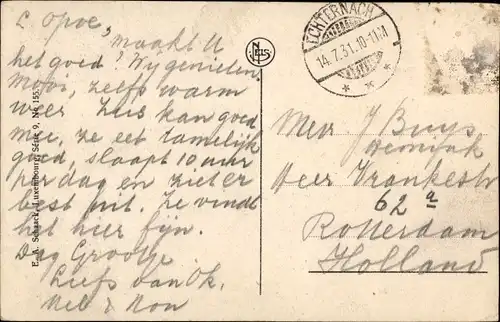 L Opoe,
maakt U
het goed? Wy genieten.
Mooi, zelfs warm
weer. Zus kan goed
mee, ze eet tamelijk
goed, slaapt 10 uur
per dag en ziet er
best uit. Ze vindt
het hier fijn.
Dag Grootje
Liefs van Ok.
Neb & Non
E. A. Schaack, Luxembourg, Série 9, No 155.
NELS
ECHTERNACH
14.7.31.10-11M
* * *
Mevr J Buys
Heer Vrankestr
62 a
Rotterdam
Holland